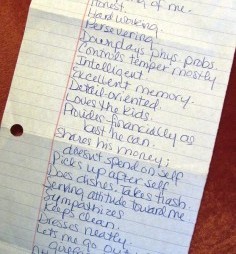 of me.
Honest.
Hard working
Persevering
Downplays phys. probs.
Controls temper mostly
Intelligent
Excellent memory.
Detail-oriented.
Loves the kids.
Provides financially as
best he can.
Shares his money;
doesn't spend on self
Picks up after self
Does dishes. Takes trash.
Serving attitude toward me
Sympathizes
Keeps clean.
Dresses neatly.
Lets me go out